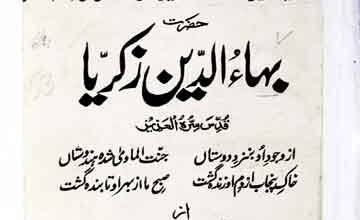 حضرت
بہاءُ الدین زکریّا
قدس سرہ العزیز
از وجودِ او بنزدِ دوستاں جنت الماویٰ شدہ ہندوستاں
خاکِ پنجاب از دمِ او زندہ گشت صبحِ ما از مہرِ او تابندہ گشت
از